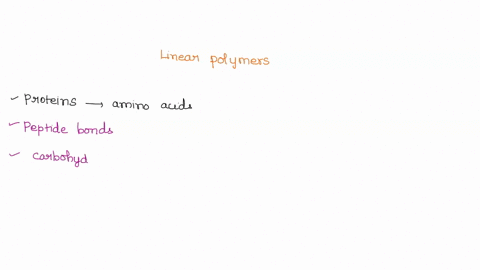 Linear polymers
✓ proteins → amino acids
✓ Peptide bonds
✓ carbohyd